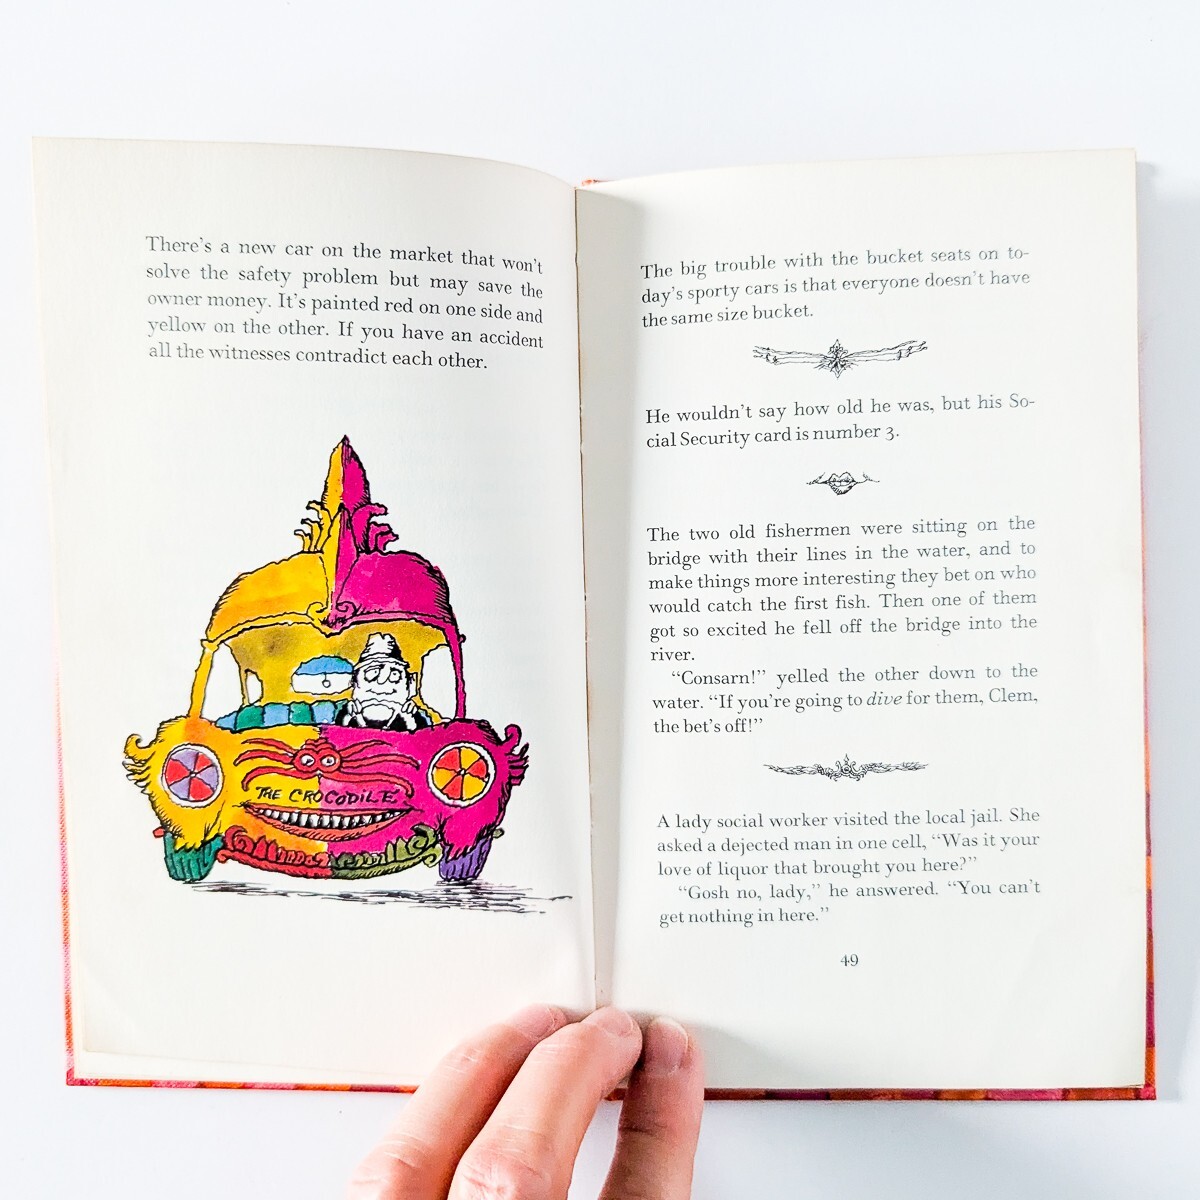 There's a new car on the market that won't
solve the safety problem but may save the
owner money. It's painted red on one side and
yellow on the other. If you have an accident
all the witnesses contradict each other.
THE CROCODILE
The big trouble with the bucket seats on to-
day's sporty cars is that everyone doesn't have
the same size bucket.
He wouldn't say how old he was, but his So-
cial Security card is number 3.
The two old fishermen were sitting on the
bridge with their lines in the water, and to
make things more interesting they bet on who
would catch the first fish. Then one of them
got so excited he fell off the bridge into the
river.
"Consarn!" yelled the other down to the
water. "If you're going to dive for them, Clem,
the bet's off!"
A lady social worker visited the local jail. She
asked a dejected man in one cell, "Was it your
love of liquor that brought you here?"
"Gosh no, lady," he answered. "You can't
get nothing in here."
49